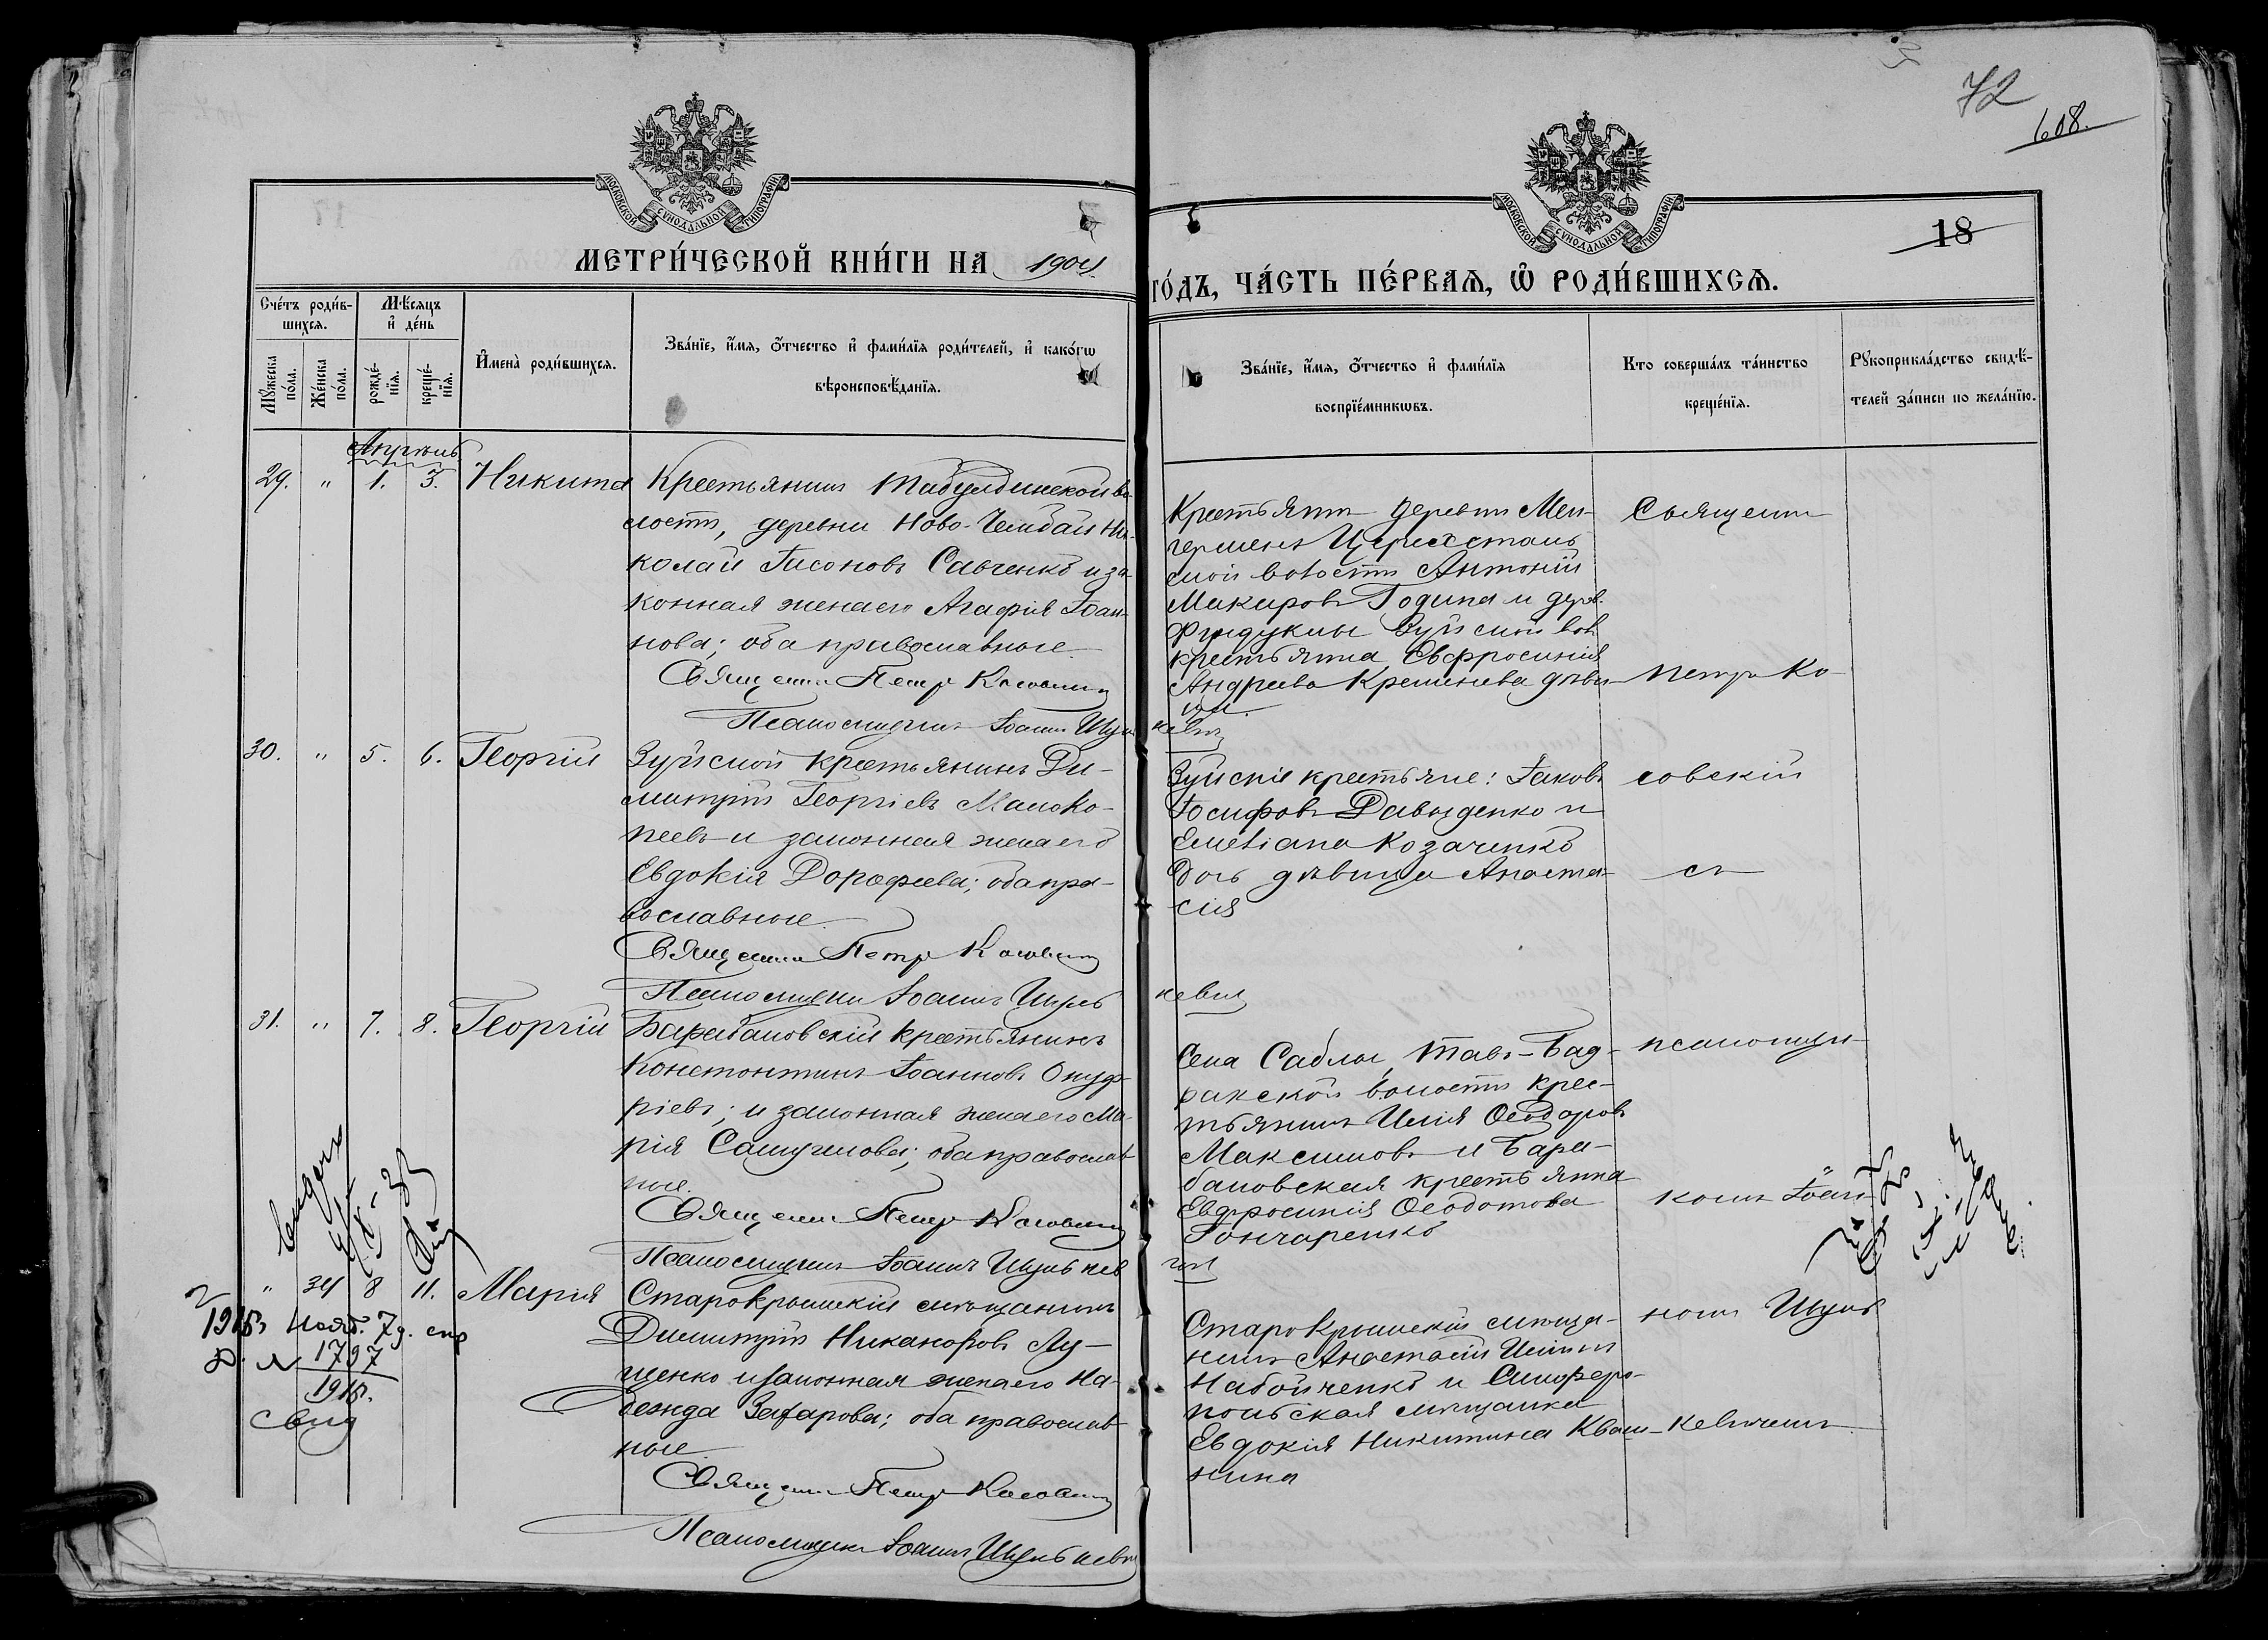 72
608.
МОСКОВСКОЙ СѴНОДАЛЬНОЙ ТИПОГРАФІИ
МОСКОВСКОЙ СѴНОДАЛЬНОЙ ТИПОГРАФІИ
18
МЕТРИ́ЧЕСКОЙ КНИ́ГИ НА 1904
ГО́ДЪ, ЧА́СТЬ ПЕ́РВАѦ, Ѡ҆ РОДИ́ВШИХСѦ.
Сче́тъ роди́в-
шихсѧ.
Мѣ́сѧцъ
и҆ де́нь
Мꙋ́жеска
по́ла.
Же́нска
по́ла.
рожде́-
нїѧ.
креще́-
нїѧ.
И҆мена̀ роди́вшихсѧ.
Зва́нїе, и҆́мѧ, ѻ҆́тчество и҆ фами́лїѧ роди́телей, и҆ како́гѡ
вѣроисповѣ́данїѧ.
Зва́нїе, и҆́мѧ, ѻ҆́тчество и҆ фами́лїѧ
воспрїе́мникѡвъ.
Кто соверша́лъ та́инство
креще́нїѧ.
Рꙋкоприкла́дство свидѣ́-
телей за́писи по жела́нїю.
Апрѣль
29. " 1. 3. Никита
Крестьянинъ Табулдинской во-
лости, деревни Ново-Чембай Ни-
колай Іасоновъ Савченко и за-
конная жена его Агафія Іоан-
нова; оба православные.
Священникъ Петръ
Псаломщикъ Іоаннъ Шуль
кевич
Крестьянинъ деревни Мен-
герменъ
ской волости Антоній
Макаровъ Година и дерев.
Фундуклы Зуйской вол.
крестьянка Евфросинія
Андреева дѣви-
ца.
30. " 5. 6. Георгій
Зуйской крестьянинъ Ди-
митрій Георгіевъ Малоко-
пеевъ и законная жена его
Евдокія Дорофеева; оба пра-
вославные.
Священникъ Петръ
Псаломщикъ Іоаннъ Шуль
кевич
Зуйскіе крестьяне: Іаковъ
Іосифовъ Давыденко и
Емеліана Козаченко
дочь дѣвица Анаста-
сія
31. " 7. 8. Георгій
Барабановскій крестьянинъ
Константинъ Іоанновъ Онуф-
ріевъ; и законная жена его Ма-
рія Самуилова; оба православ-
ные.
Священникъ Петръ
Псаломщикъ Іоаннъ Шулькев
ич
Села Саблы, Тавъ-Бад-
ракской волости крес-
тьянинъ Илія Ѳеодоровъ
Максимовъ и Бара-
бановская крестьянка
Евфросинія Ѳеодотова
Гончаренко
" 24 8 11. Марія
Старокрымскій мѣщанинъ
Димитрій Никаноровъ Лу-
ценко и законная жена его На-
дежда Захарова; оба православ-
ные
Священникъ Петръ
Псаломщикъ Іоаннъ Шулькевич
Старокрымскій мѣща-
нинъ Анастасій Иліинъ
Набойченко и Симферо-
польская мѣщанка
Евдокія Никитина Кваш-
нина
Священникъ
Петръ Ко-
совскій
съ
псаломщи-
комъ Іоан-
номъ Шуль-
кевичемъ
1915 Нояб. 7 д.
1797
1915.